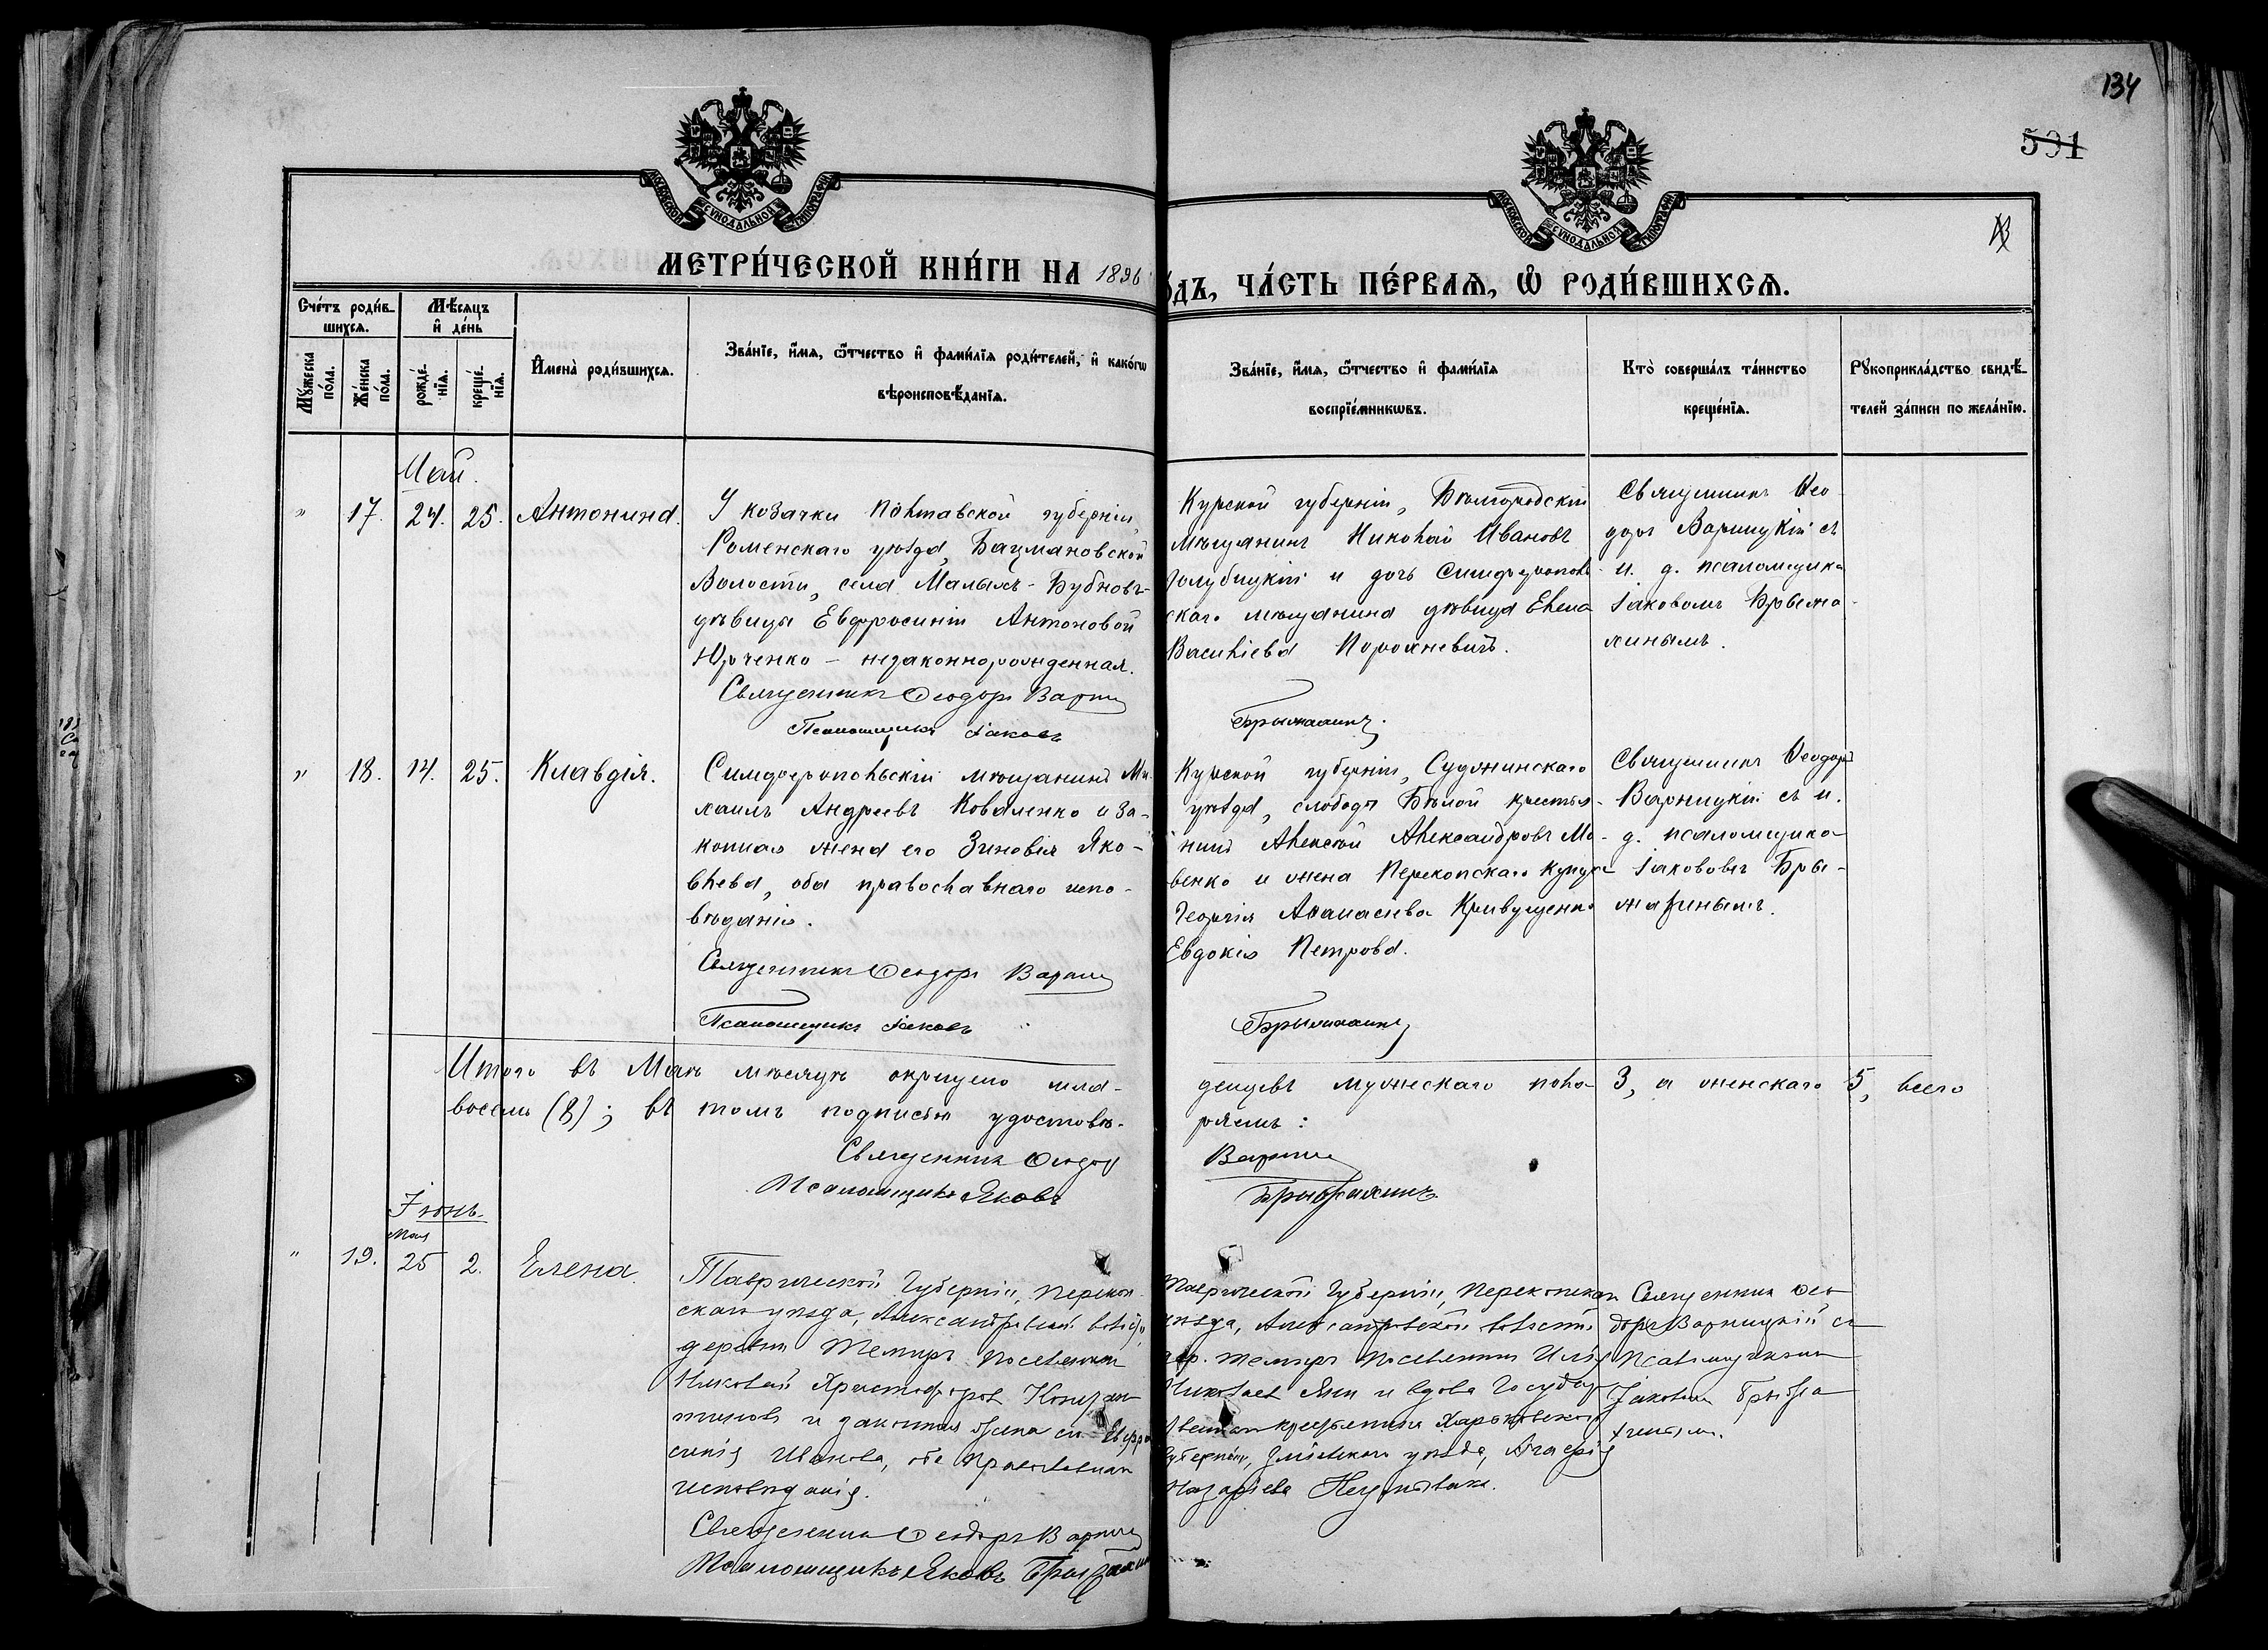 134
591
МОСКОВСКОЙ СУНОДАЛЬНОЙ ТИПОГРАФІИ
МОСКОВСКОЙ СУНОДАЛЬНОЙ ТИПОГРАФІИ
МЕТРИ́ЧЕСКОЙ КНИ́ГИ НА 1896
О́ДЪ, ЧА́СТЬ ПЕ́РВАѦ, Ѡ҆ РОДИ́ВШИХСѦ.
Сче́тъ роди́в-
шихсѧ.
Мꙋ́жеска по́ла.
Же́нска по́ла.
Мѣ́сѧцъ
и҆ де́нь
рожде́-
нїѧ.
креще́-
нїѧ.
И҆мена̀ роди́вшихсѧ.
Зва́нїе, и҆́мѧ, ѻ҆́тчество и҆ фами́лїѧ роди́телей, и҆ како́гѡ
вѣроисповѣ́данїѧ.
Зва́нїе, и҆́мѧ, ѻ҆́тчество и҆ фами́лїѧ
воспрїе́мникѡвъ.
Кто̀ соверша́лъ та́инство
креще́нїѧ.
Рꙋкоприкла́дство свидѣ́-
телей за́писи по жела́нїю.
Май.
" 17. 24. 25. Антонина.
У козачки Полтавской губерніи,
Роменскаго уѣзда, Бацмановской
Волости, села Малыхъ-Бубновъ-
дѣвицы Евфросиніи Антоновой
Юрченко – незаконнорожденная.
Священникъ Ѳеодоръ Варни
Псаломщикъ Іаковъ
Курской губерніи, Бѣлгородскій
мѣщанинъ Николай Ивановъ
Голубицкій и дочь Симферополь-
скаго мѣщанина дѣвица Елена
Васильева Порохневичъ.
Брыжахинъ.
Священникъ Ѳео-
доръ Варницкій съ
и. д. псаломщика
Іаковомъ Брыжа-
хинымъ.
" 18. 14. 25. Клавдія.
Симферопольскій мѣщанинъ Ми-
хаилъ Андреевъ Коваленко и за-
конная жена его Зиновія Яко-
влева, оба православнаго испо-
вѣданія.
Священникъ Ѳеодоръ Варни
Псаломщикъ Іаковъ
Курской губерніи, Суджинскаго
уѣзда, слободы Бѣлой крестья-
нинъ Алексѣй Александровъ Мо-
венко и жена Перекопскаго купца
Георгія Аѳанасіева Кривущенко
Евдокія Петрова.
Брыжахинъ
Священникъ Ѳеодоръ
Варницкій съ и.
д. псаломщика
Іаковомъ Бры-
жахинымъ.
Итого въ Маѣ мѣсяцѣ окрещено мла-
денцевъ мужескаго пола 3, а женскаго 5, всего
восемь (8); въ томъ подписью удостовѣ-
ряемъ:
Священникъ Ѳеодоръ
Варни
Псаломщикъ Яковъ
Брыжахинъ
Іюнь.
Мая
" 19. 25 2. Елена.
Таврической Губерніи, Перекоп-
скаго уѣзда, Александровской волости
деревни Темиръ поселянинъ
Николай Христофоровъ
и законная жена его Евфро-
синія Иванова, оба Православнаго
исповѣданія.
Священникъ Ѳеодоръ Варни
Псаломщикъ Яковъ Брыжахинъ
Таврической Губерніи, Перекопскаго
уѣзда, Александровской волости
дер. Темиръ поселянинъ Илія
Николаевъ и вдова Государ
крестьянина Харьковской
Губерніи, Зміевскаго уѣзда,
Назаріева
Священникъ Ѳео-
доръ Варницкій съ
Псаломщикомъ
Іаковомъ Брыжа-
хинымъ.